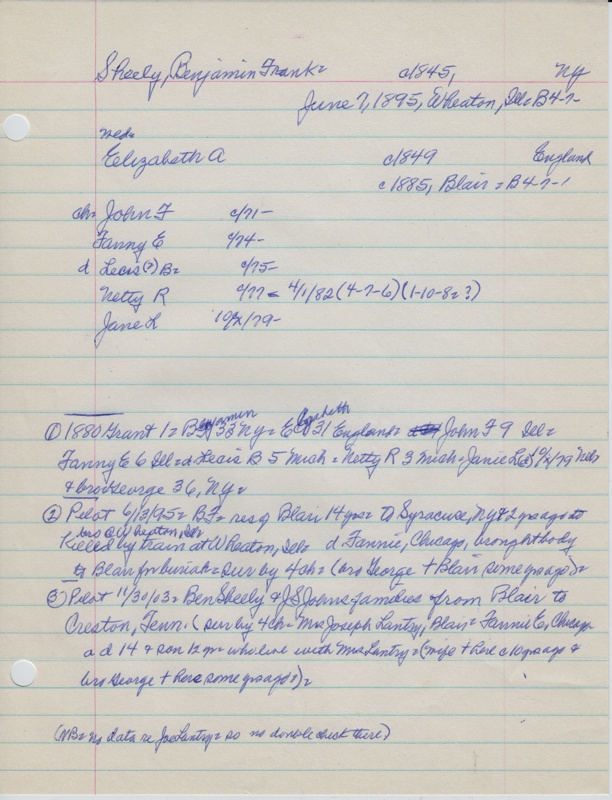 Sheely, Benjamin Frank= c1845, NY
June 7, 1895, Wheaton, Ill= B4-7-
wed=
Elizabeth A c1849 England
c1885, Blair = B4-7-1
ch= John F c/71-
Fanny E c/74-
d Lecis(?) B= c/75-
Netty R c/77 - 4/1/82 (4-7-6) (1-10-8=?)
Jane L 10/x/79-
① 1880 Grant 1= Benjamin 33 NY = Elizabeth 31 England= John F 9 Ill=
Fanny E 6 Ill= d Lecis B 5 Mich = Netty R 3 Mich = Janie L 10/x/79 Neb
+ bro George 36, NY=
② Pilot 6/13/95= BF= res of Blair 14 yrs= to Syracuse, NY 2 yrs ago to
bro @ Wheaton, Ill=
Killed by train at Wheaton, Ill= d Fannie, Chicago, brought body
to Blair for burial= sur by 4 ch= (bro George + Blair some yrs ago)=
③ Pilot 11/30/03= Ben Sheely & JS Johns families from Blair to
Creston, Tenn. (sur by 4 ch= Mrs Joseph Lantry, Blair= Fannie E, Chicago
a d 14 & son 12 who live with Mrs Lantry= (wife + here c10 yrs ago &
bro George + here some yrs ago)=
(NB= no data re Joe Lantry= so no double check there)